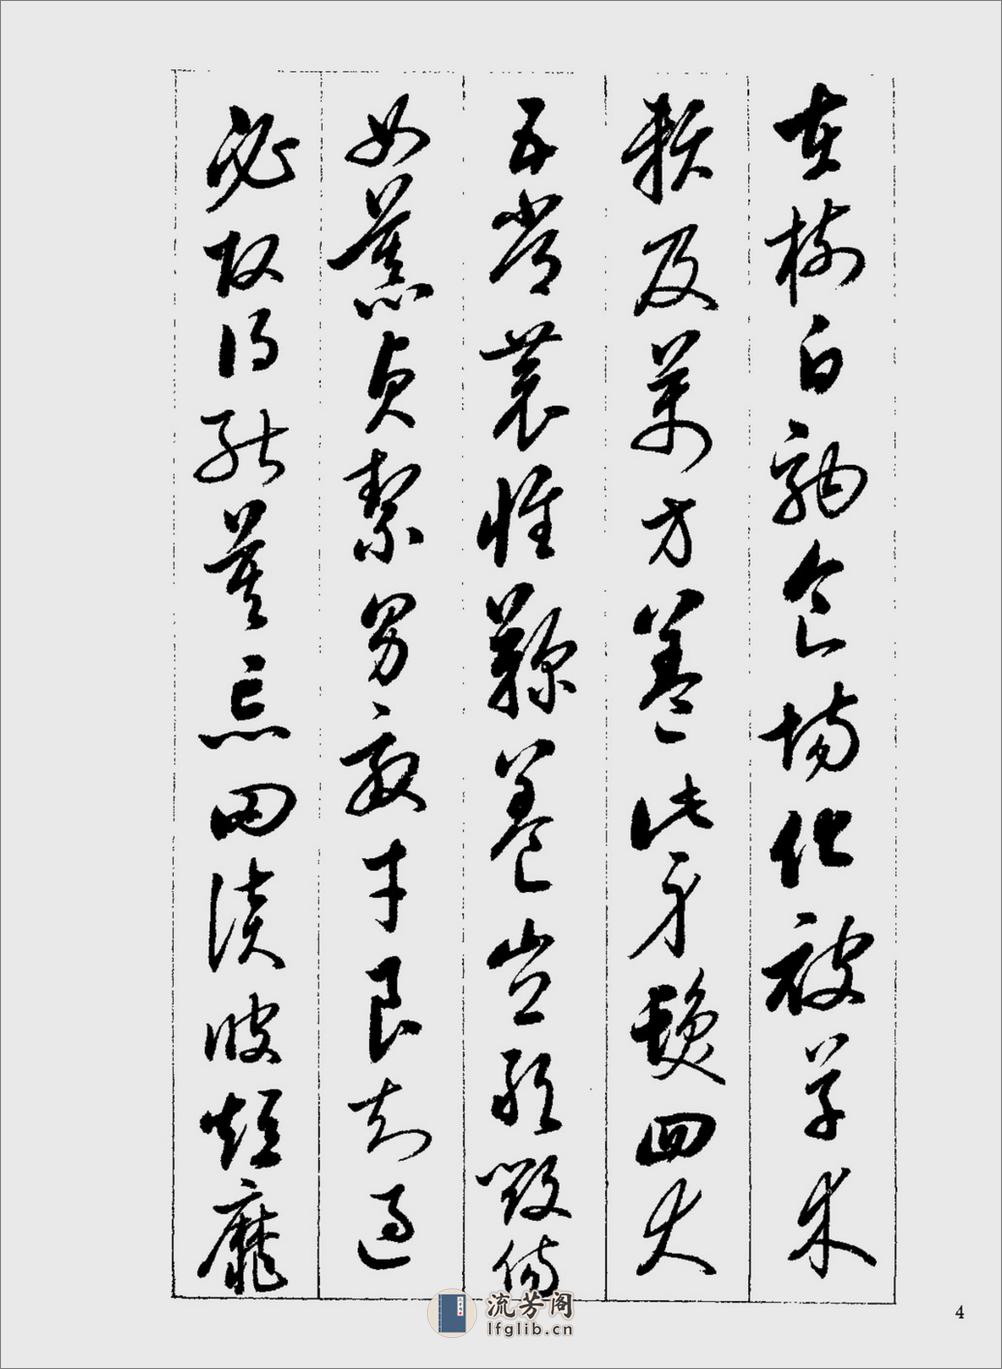 在樹白駒食場化被草木
賴及萬方蓋此身髮四大
五常恭惟鞠養豈敢毀傷
女慕貞絜男效才良知過
必改得能莫忘罔談彼短靡
流芳阁
lfglib.cn
4